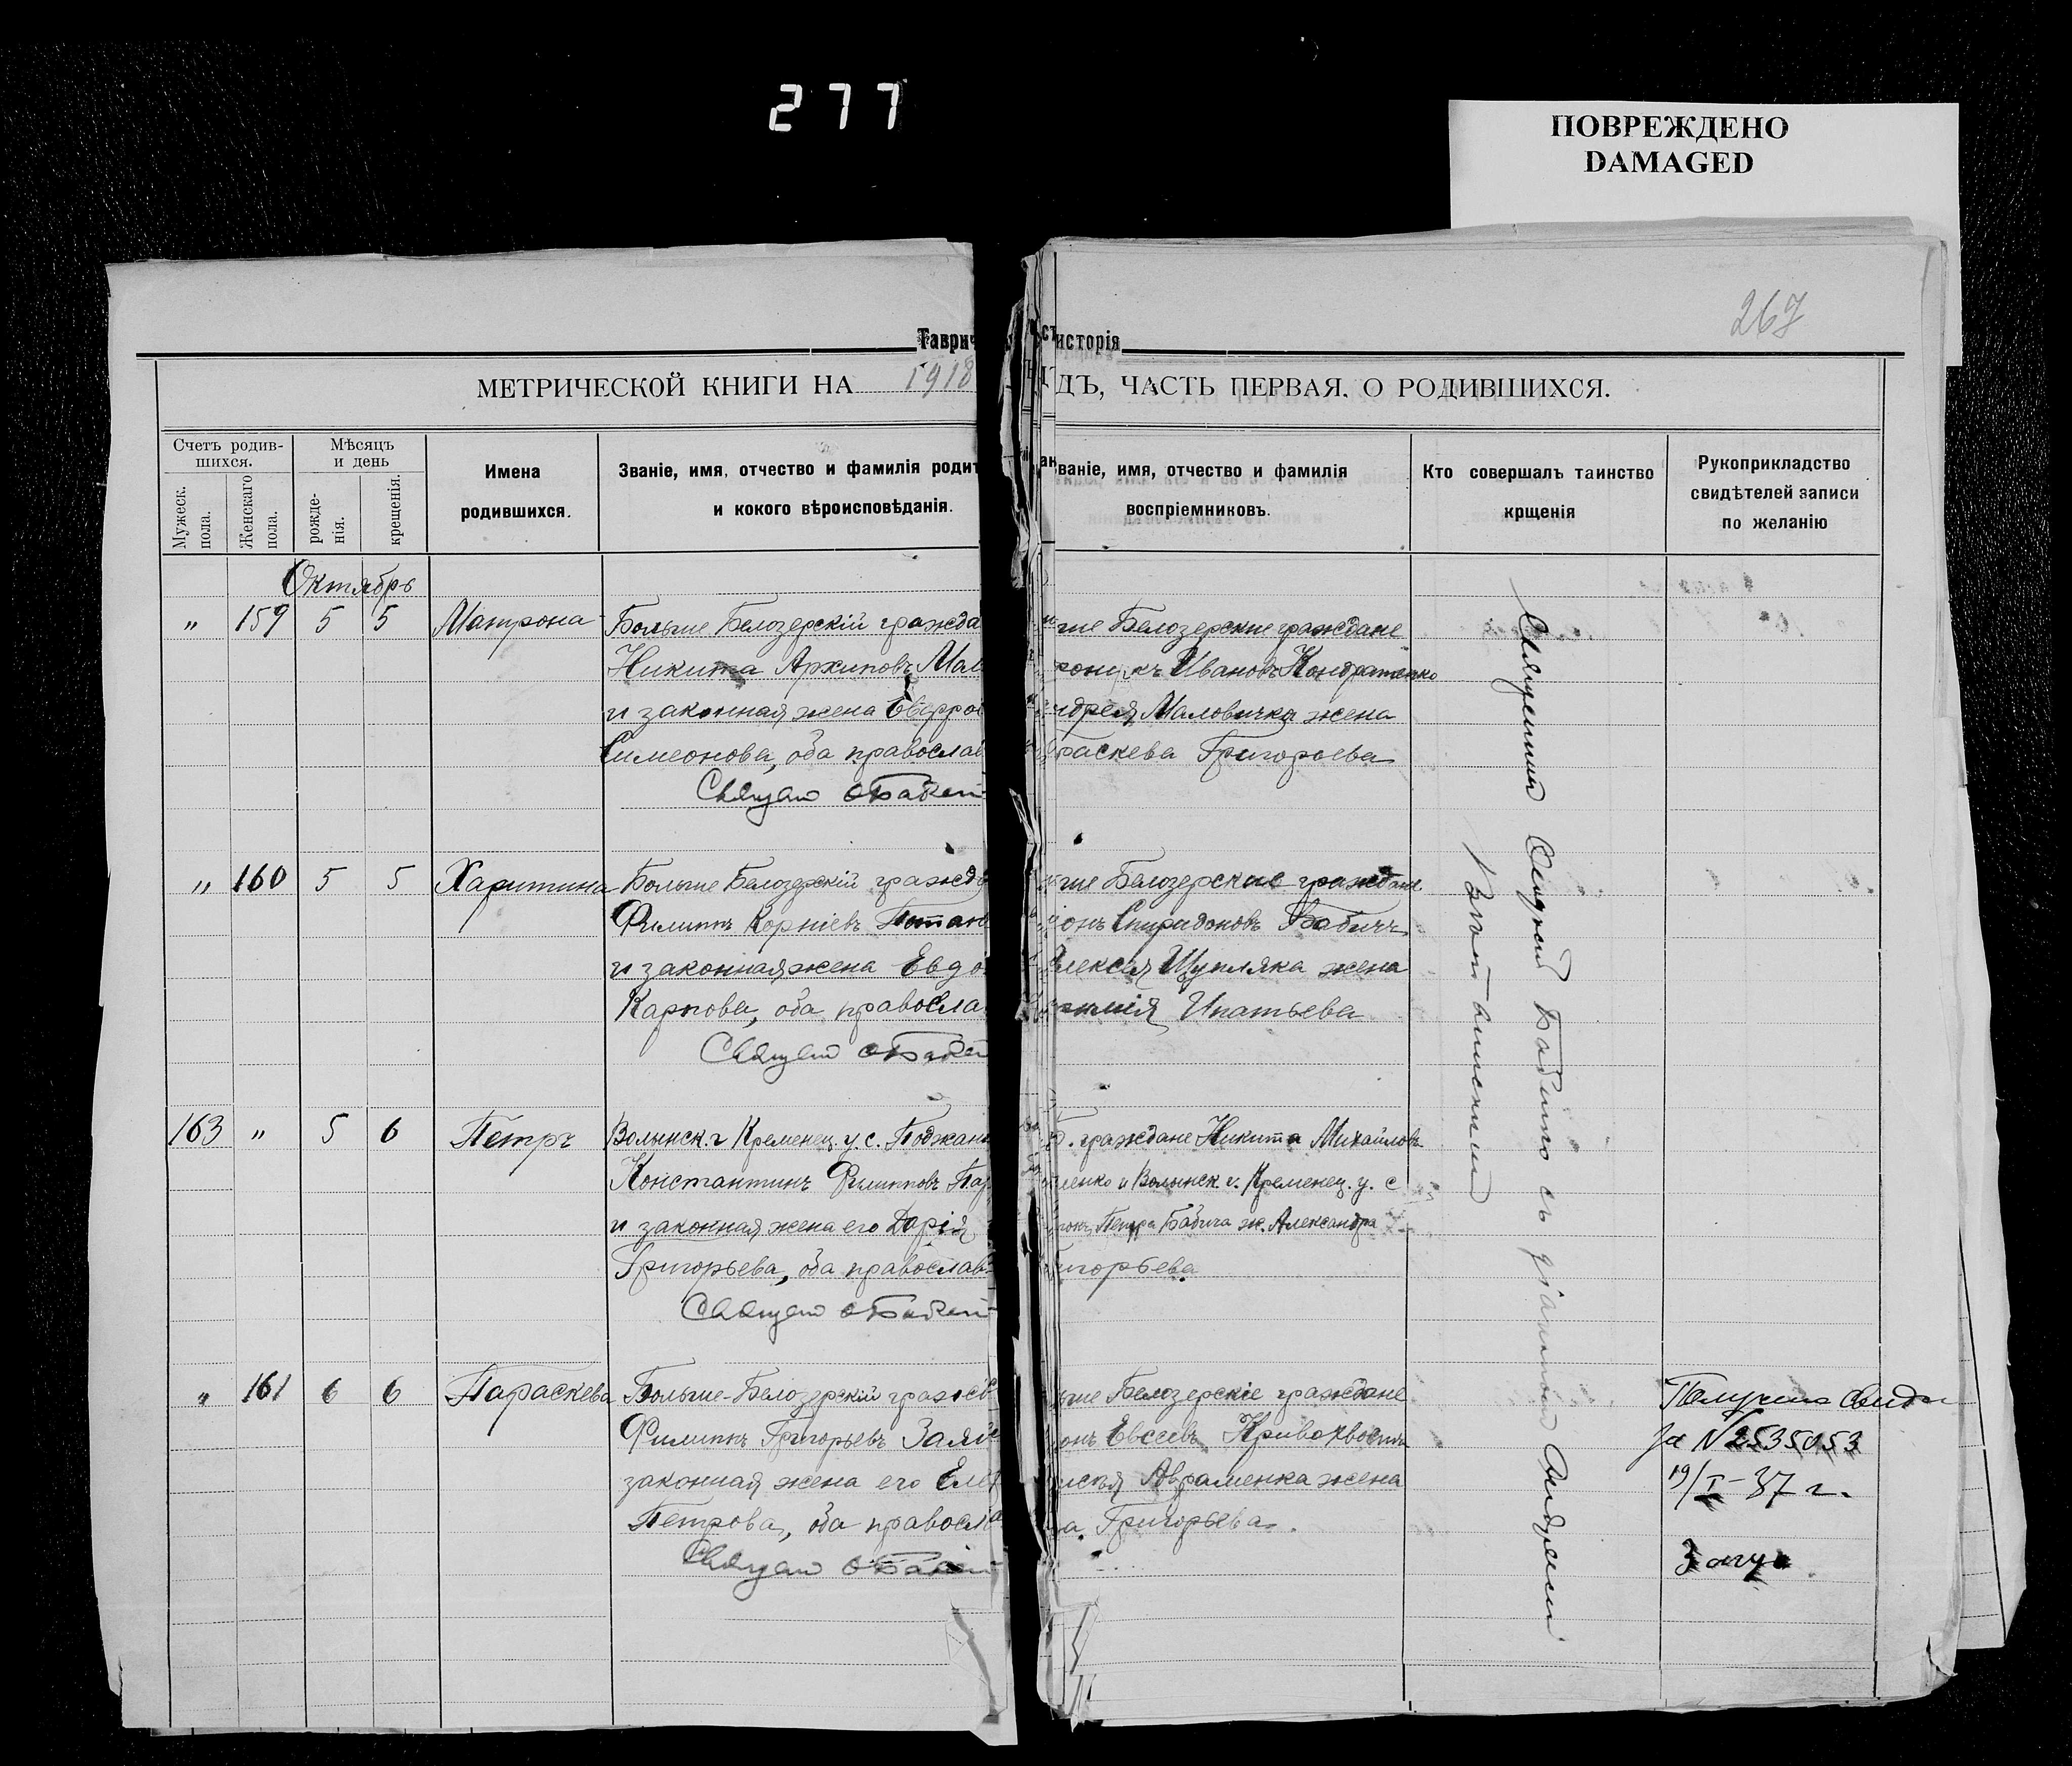 277
ПОВРЕЖДЕНО
DAMAGED
267
Таврич
исторія
МЕТРИЧЕСКОЙ КНИГИ НА 1918
ДЪ, ЧАСТЬ ПЕРВАЯ. О РОДИВШИХСЯ.
Счетъ родив-
шихся.
Мужеск.
пола.
Женскаго
пола.
Мѣсяцъ
и день
рожде-
нія.
крещенія.
Имена
родившихся.
Званіе, имя, отчество и фамилія родит
и кокого вѣроисповѣданія.
ваніе, имя, отчество и фамилія
воспріемниковъ.
Кто совершалъ таинство
крщенія
Рукоприкладство
свидѣтелей записи
по желанію
Октябрь
" 159 5 5 Матрона
Больше Белозерскій гражда
Никита Архиповъ Мал
и законная жена Евфро
Симеонова, оба православ
гие Белозерские граждане
Ивановъ Кондратенко
ндрея Маловичка жена
раскева Григорьева
" 160 5 5 Харитина
Больше Белозерскій гражд
Филиппъ Корніевъ
и законная жена Евдо
Карпова, оба правосла
гие Белозерские граждане
онъ Спиридоновъ Бабичъ
лексея Щупляка жена
Ипатьева
163 " 5 6 Петръ
Волынск. г Кременец. у. с. Поджан
Константинъ Филипповъ
и законная жена его Дарія
Григорьева, оба православ
. граждане Никита Михайловъ
ленко и Волынск г. Кременец. у. с
Петра Бабича ж. Александра
игорьева
" 161 6 6 Параскева
Больше-Белозерскій гражд
Филиппъ Григорьевъ
законная жена его Еле
Петрова, оба правосла
ше Белозерскіе граждане
онъ Евсеевъ Кривохвостъ
Авраменка жена
а Григорьева.
Священникъ
За N 2535053
19/I-37 г.